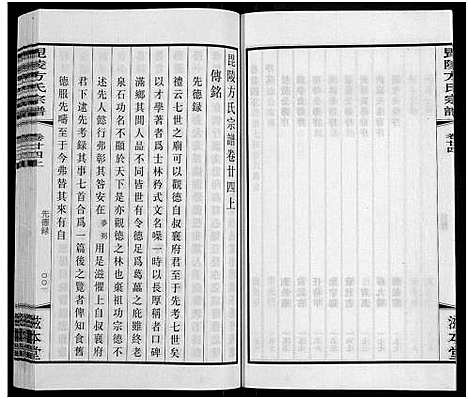 毘陵方氏宗譜
卷廿四
滋本堂
毘陵方氏宗譜卷廿四上
傳銘
先德録
禮云七世之廟可以觀德自叔襄府君至于先考七世矣
以才學著者爲士林矜式文名噪一時以長厚稱者口碑
滿鄉其間人品行世各有令德足爲葛藟之庇雖終老
泉石功名不顯於天下是亦觀德之林也棄祖功宗德不
述先人隱行弗彰其咎安在夢弼用是滋懼上自叔襄府
君下逮先考録其事七首合爲一篇後之覽者俾知食舊
德服先疇至于今弗替其來有自
毘陵方氏宗譜
卷廿四上
先德録
001